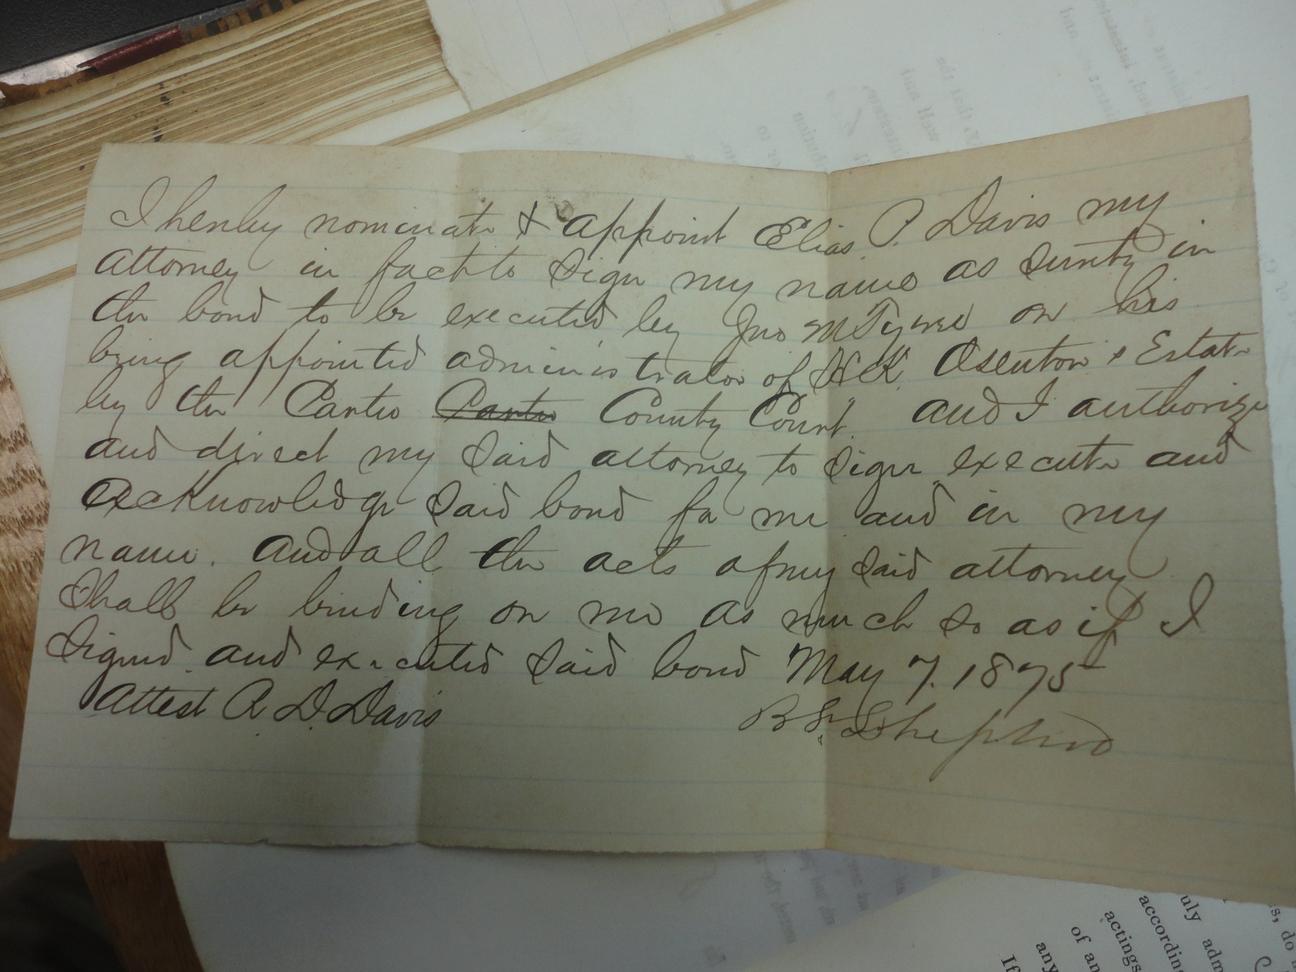 I hereby nominate & appoint Elias P. Davis my
attorney in fact to sign my name as surety in
the bond to be executed by Jno M
on his
being appointed administrator of H K Osenton's Estate
by the Carter Carter County Court. and I authorize
and direct my said attorney to sign execute and
acknowledge said bond for me and in my
name. and all the acts of my said attorney
shall be binding on me as much so as if I
signed and executed said bond May 7. 1875
Attest A. D. Davis
B Shepherd
uly adm
according
actings
of an
any
If